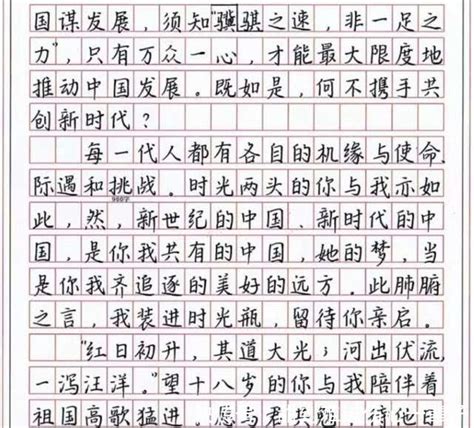 国谋发展，须知"骥骐之速，非一足之
力"，只有万众一心，才能最大限度地
推动中国发展。既如是，何不携手共
创新时代？
每一代人都有各自的机缘与使命，
际遇和挑战。时光两头的你与我亦如
900字
此，然，新世纪的中国、新时代的中
国，是你我共有的中国，她的梦，当
是你我齐追逐的美好的远方。此肺腑
之言，我装进时光瓶，留待你亲启。
"红日初升，其道大光；河出伏流，
一泻汪洋。"望十八岁的你与我陪伴着
祖国高歌猛进。